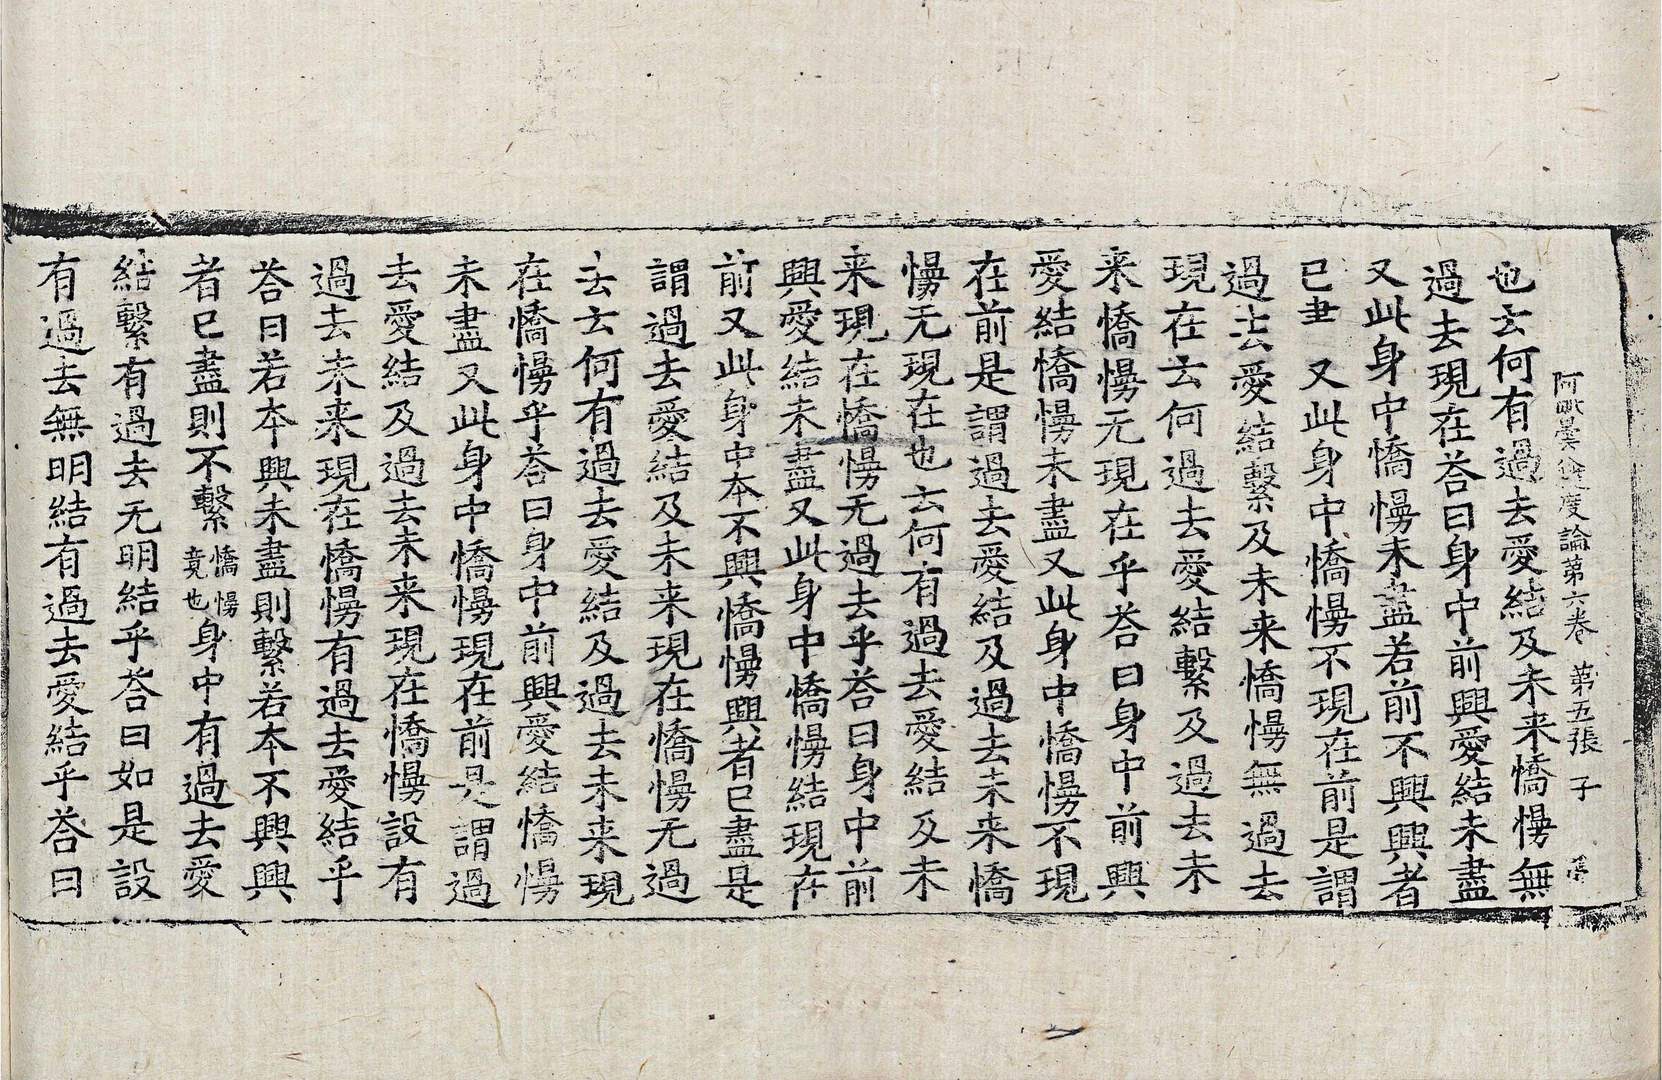 阿毗曇八揵度論第六卷　第五張　子
也云何有過去愛結及未来憍慢無
過去現在荅曰身中前興愛結未盡
又此身中憍慢未盡若前不興興者
已盡　又此身中憍慢不現在前是謂
過去愛結繫及未来憍慢無過去
現在云何過去愛結繫及過去未
来憍慢无現在乎荅曰身中前興
愛結憍慢未盡又此身中憍慢不現
在前是謂過去愛結及過去未来憍
慢无現在也云何有過去愛結及未
来現在憍慢无過去乎荅曰身中前
興愛結未盡又此身中憍慢結現在
前又此身中本不興憍慢興者已盡是
謂過去愛結及未来現在憍慢无過
去云何有過去愛結及過去未来現
在憍慢乎荅曰身中前興愛結憍慢
未盡又此身中憍慢現在前是謂過
去愛結及過去未来現在憍慢設有
過去未来現在憍慢有過去愛結乎
荅曰若本興未盡則繫若本不興興
者已盡則不繫憍慢竟也身中有過去愛
結繫有過去无明結乎荅曰如是設
有過去無明結有過去愛結乎荅曰